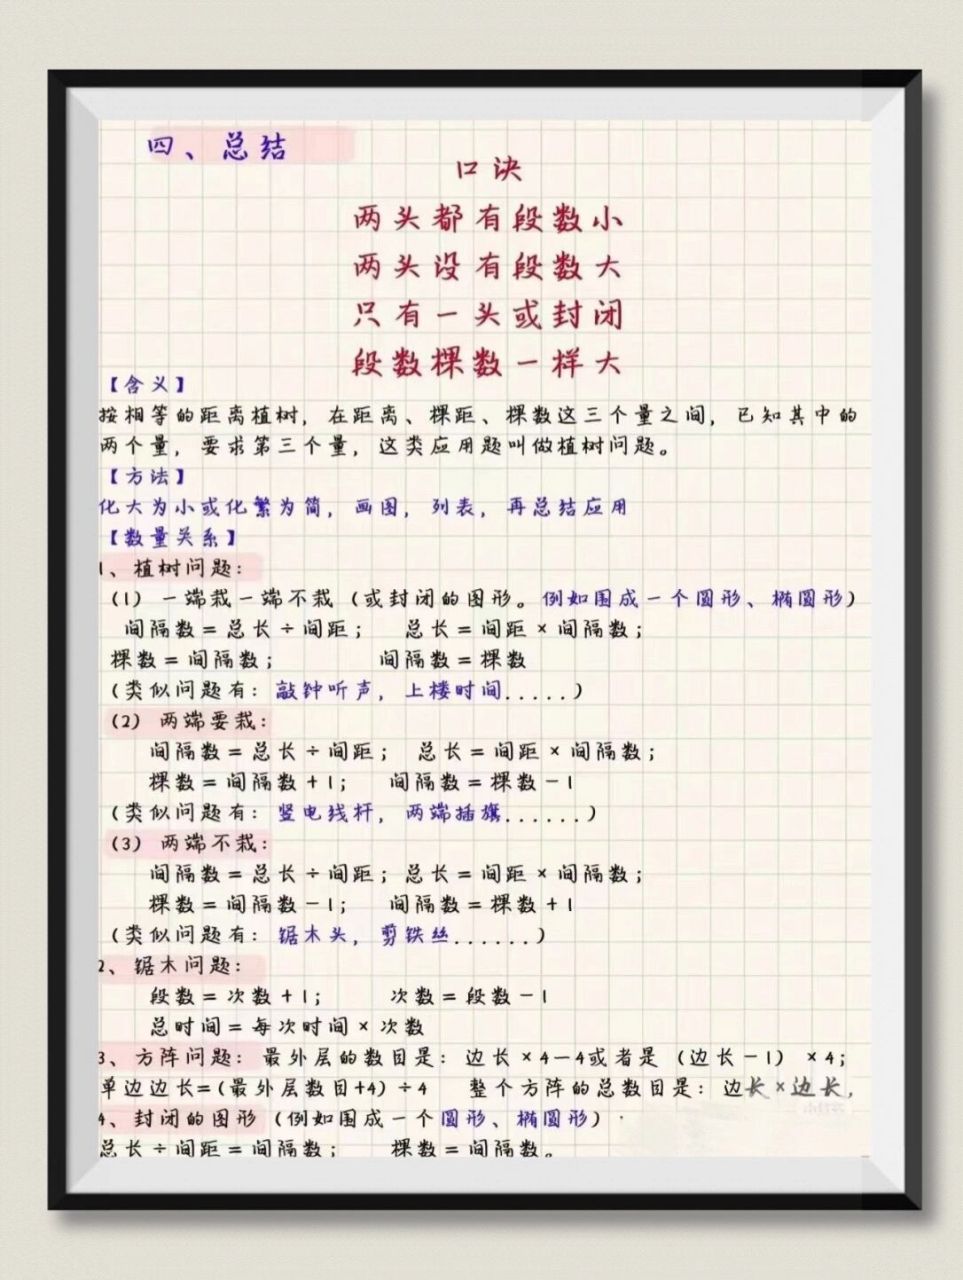 四、总结
口诀
两头都有段数小
两头没有段数大
只有一头或封闭
段数棵数一样大
【含义】
按相等的距离植树，在距离、棵距、棵数这三个量之间，已知其中的
两个量，要求第三个量，这类应用题叫做植树问题。
【方法】
化大为小或化繁为简，画图，列表，再总结应用
【数量关系】
1、植树问题：
（1）一端栽一端不栽（或封闭的图形。例如围成一个圆形、椭圆形）
间隔数=总长÷间距； 总长=间距×间隔数；
棵数=间隔数； 间隔数=棵数
（类似问题有：敲钟听声，上楼时间.....）
（2）两端要栽：
间隔数=总长÷间距； 总长=间距×间隔数；
棵数=间隔数+1； 间隔数=棵数-1
（类似问题有：竖电线杆，两端插旗......）
（3）两端不栽：
间隔数=总长÷间距；总长=间距×间隔数；
棵数=间隔数-1； 间隔数=棵数+1
（类似问题有：锯木头，剪铁丝......）
2、锯木问题：
段数=次数+1； 次数=段数-1
总时间=每次时间×次数
3、方阵问题：最外层的数目是：边长×4-4或者是（边长-1）×4；
单边边长=(最外层数目+4)÷4 整个方阵的总数目是：边长×边长，
4、封闭的图形（例如围成一个圆形、椭圆形）
总长÷间距=间隔数； 棵数=间隔数。